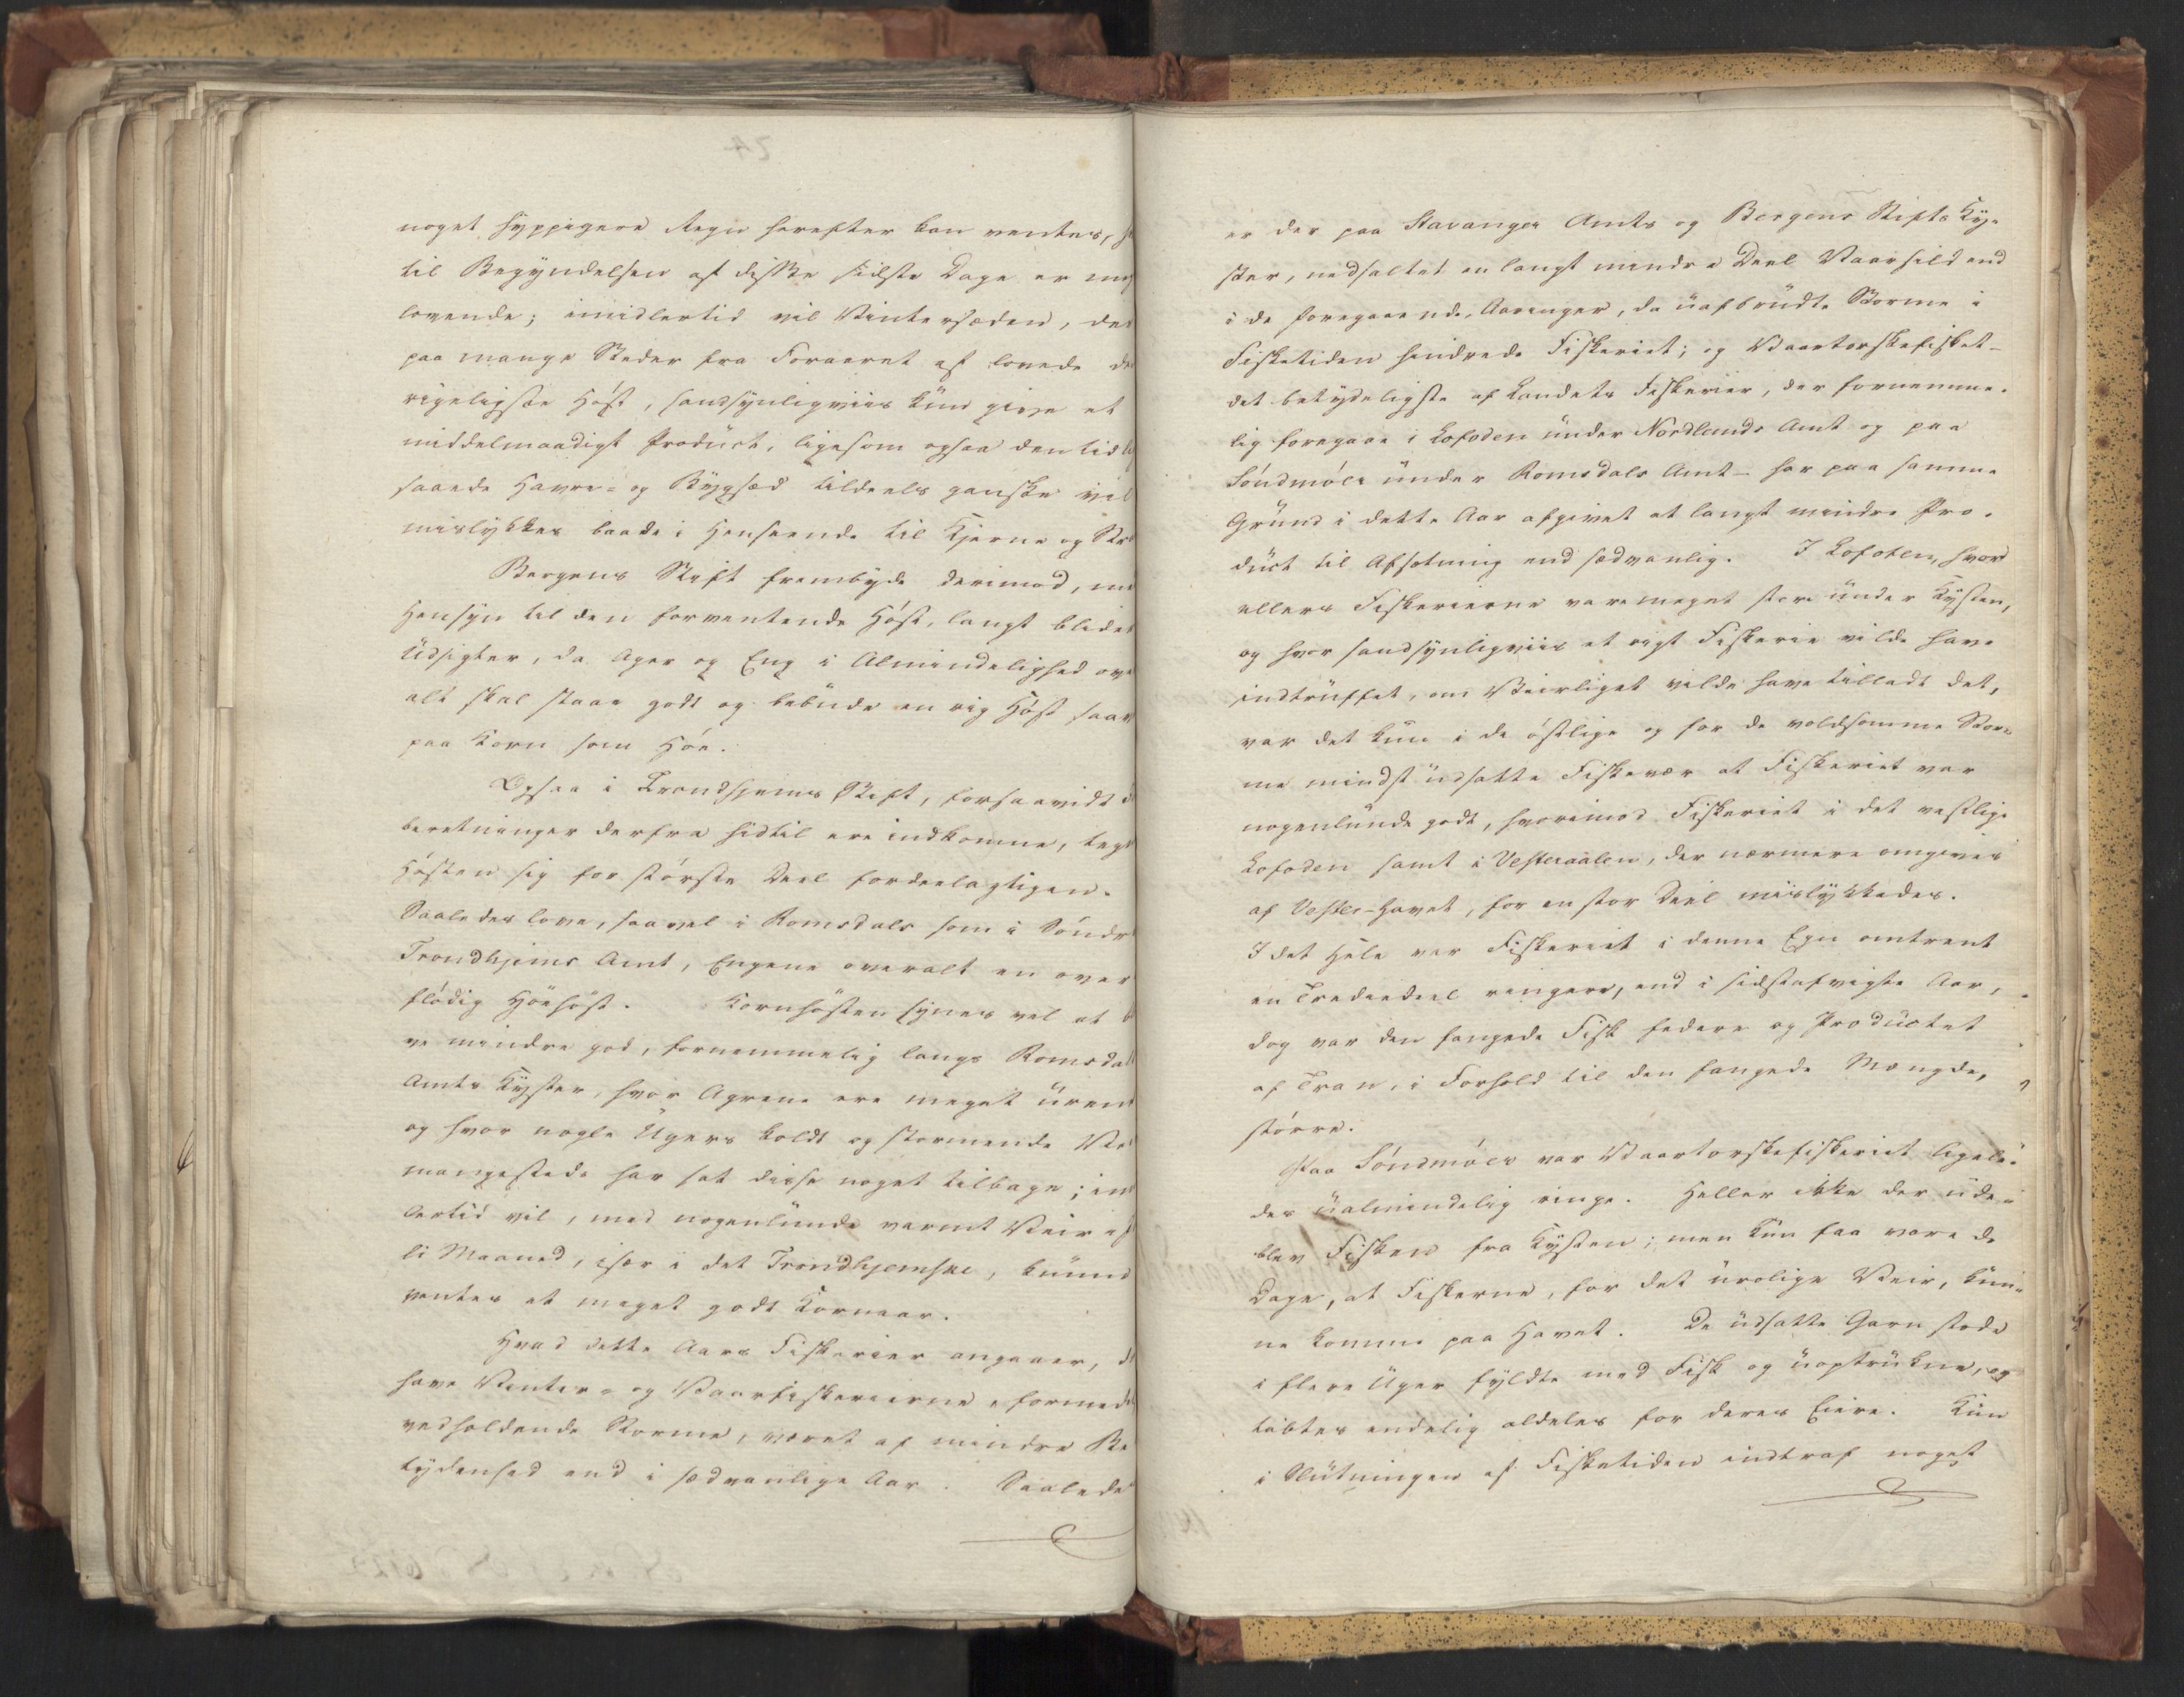 noget hyppigere Regn herefter kan ventes,
til Begyndelsen af disse sidste Dage er
lovende; imidlertid vil Vintersæden, der
paa mange Steder fra Foraaret af lovede de
rigeligste Høst, sandsynligviis kun give et
middelmaadigt Product, ligesom ogsaa den
saaede Havre- og Bygsæd tildeels ganske vil
mislykkes baade i Henseende til Kjerne og
Bergens Stift frembyde derimod,
Hensyn til den forventende Høst, langt
Udsigter, da Ager og Eng i Almindelighed
alt skal staae godt og bebude en riig Høst
paa Korn som Höe.
Ogsaa i Trondhjems Stift, forsaavidt
beretninger derfra hidtil ere indkomne,
Høsten sig for største Deel fordeelagtigen.
Saaledes love, saavel i Romsdals som i Söndre
Trondhjems Amt, Engene overalt en over
flödig Höehöst. Kornhøsten synes vel at
ve mindre god, fornemmelig langs Romsdals
Amts Kyster, hvor Agrene ere meget
og hvor nogle Ugers koldt og stormende
mangesteds har sat disse noget tilbage;
lertid vil, med nogenlunde varmt Veir
li Maaned, især i det Trondhjemske, kunne
ventes et meget godt Kornaar.
Hvad dette Aars Fiskerier angaaer,
have Vinter- og Vaarfiskerierne,
vedholdende Storme, været af mindre Be
tydenhed end i sædvanlige Aar. Saalede
er der paa Stavanger Amts og Bergens Stifts Ky-
ster, nedsaltet en langt mindre Deel Vaarsild end
i de foregaaende Aaringer, da uafbrudte Storme i
Fisketiden hindrede Fiskeriet; og Vaartorskefisket-
det betydeligste af Landets Fiskerier, der fornemme-
lig foregaae i Lofoden under Nordlands Amt og paa
Söndmöer under Romsdals Amt - har paa samme
Grund i dette Aar afgivet et langt mindre Pro-
duct til Afsætning end sædvanlig. I Lofoten, hvor
ellers Fiskerierne vare meget store under Kysten,
og hvor sandsynligviis et rigt Fiskerie vilde have
indtruffet, om Veirliget vilde have tilladt det,
var det kun i de østlige og for de voldsomme Stor-
me mindst udsatte Fiskevær at Fiskeriet var
nogenlunde godt, hvorimod Fiskeriet i det vestlige
Lofoden samt i Vesteraalen, der nærmere omgives
af Vester-Havet, for en stor Deel mislykkedes.
I det Hele var Fiskeriet i denne Egn omtrent
en Trediedeel ringere, end i sidstafvigte Aar,
dog var den fangede Fisk federe og Productet
af Tran, i Forhold til den fangede Mængde,
større.
Paa Söndmöer var Vaartorskefiskeriet ligele-
des ualmindelig ringe. Heller ikke der ude-
blev Fisken fra Kysten; men kun faa vare de
Dage, at Fiskerne, for det urolige Veir, kun-
ne komme paa Havet. De udsatte Garn stode
i flere Uger fyldte med Fisk og uoptrukne, og
tabtes endelig aldeles for deres Eiere. Kun
i Slutningen af Fisketiden indtraf noget